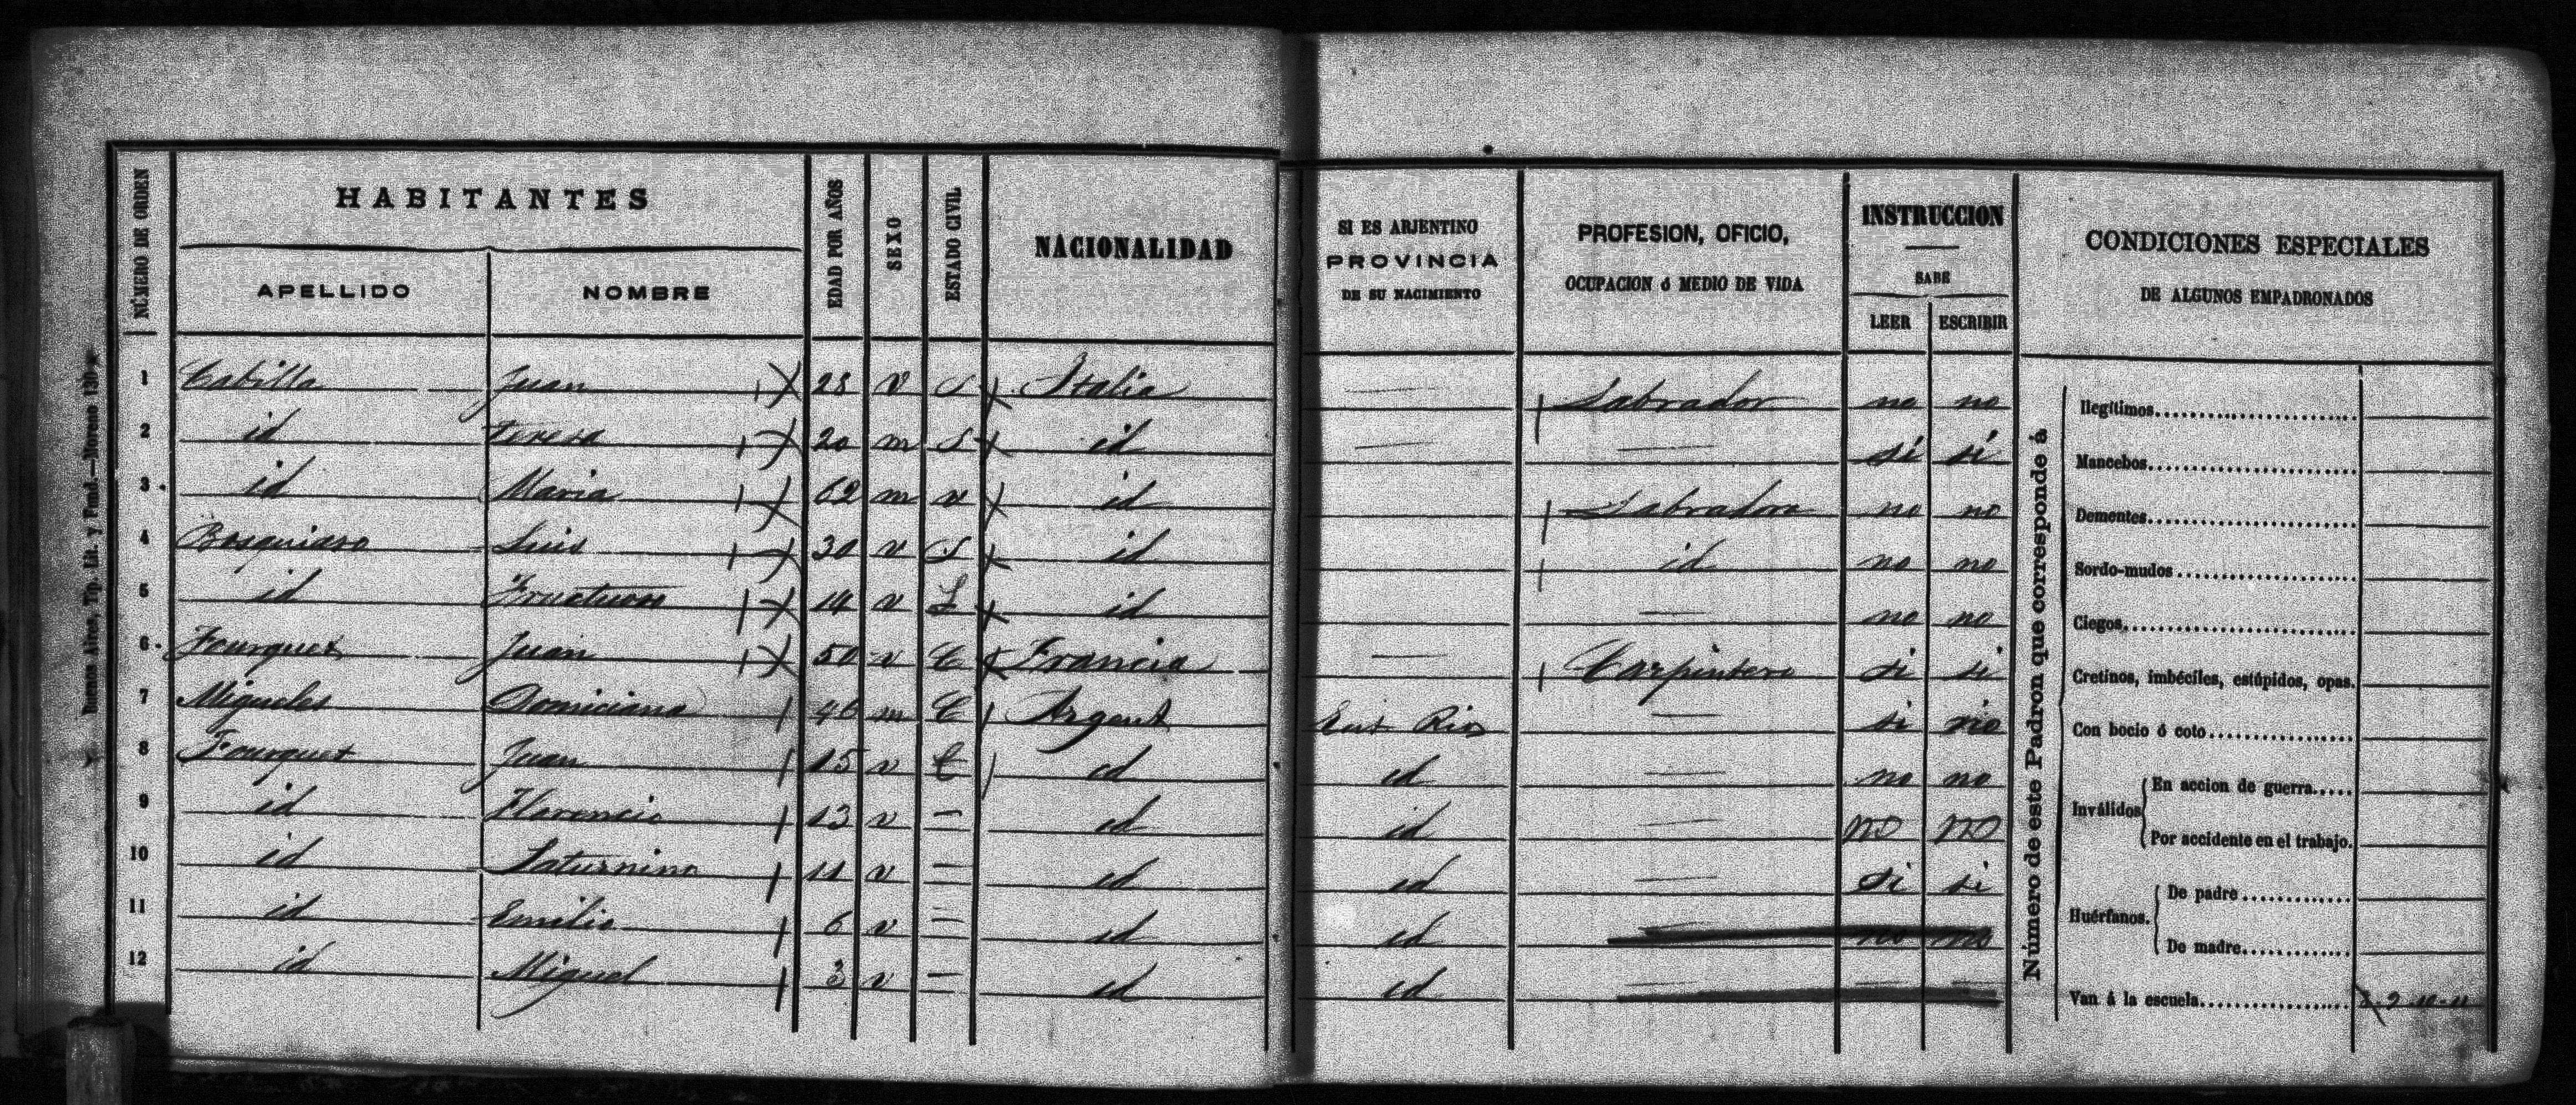 NÚMERO DE ORDEN HABITANTES EDAD POR AÑOS SEXO ESTADO CIVIL NACIONALIDAD SI ES ARJENTINO PROVINCIA DE SU NACIMIENTO PROFESION, OFICIO, OCUPACION ó MEDIO DE VIDA INSTRUCCION SABE CONDICIONES ESPECIALES DE ALGUNOS EMPADRONADOS
APELLIDO NOMBRE LEER ESCRIBIR
1 Cabilla Juan 28 v S Italia — Labrador no no
2 id Teresa 20 m S id — — si si
3 id Maria 62 m v id Labradora no no
4 Luis 30 v S id id no no
5 id Fructuoso 14 v S id — no no
6 Fourquet Juan 50 v C Francia — Carpintero si si
7 Migueles Domiciana 46 m C Argent Ent Rios — si no
8 Fourquet Juan 15 v id id — no no
9 id Florencio 13 v — id id — no no
10 id Saturnino 11 v — id id — si si
11 id Emilio 6 v — id id — no no
12 id Miguel 3 v — id id — — —
Número de este Padron que corresponde á
Ilegítimos
Mancebos
Dementes
Sordo-mudos
Ciegos
Cretinos, imbéciles, estúpidos, opas.
Con bocio ó coto
Inválidos
En accion de guerra
Por accidente en el trabajo.
Huérfanos.
De padre
De madre
Van á la escuela 9-10-11
Buenos Aires, Tip. Lit. y Fund.—Moreno 130